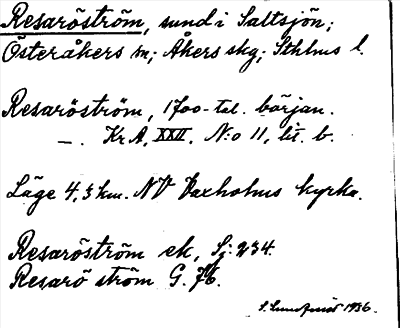 Resaröström, sund i Saltsjön;
Österåkers sn; Åkers skg; Sthlms l.
Resaröström, 1700-tal. början.
—. Kr.A, XXII, N:o 11, lit. b.
Läge 4,3 km. NV Vaxholms kyrka.
Resaröström ek, Sj: 234.
Resarö ström G. 76.
S. 1936.